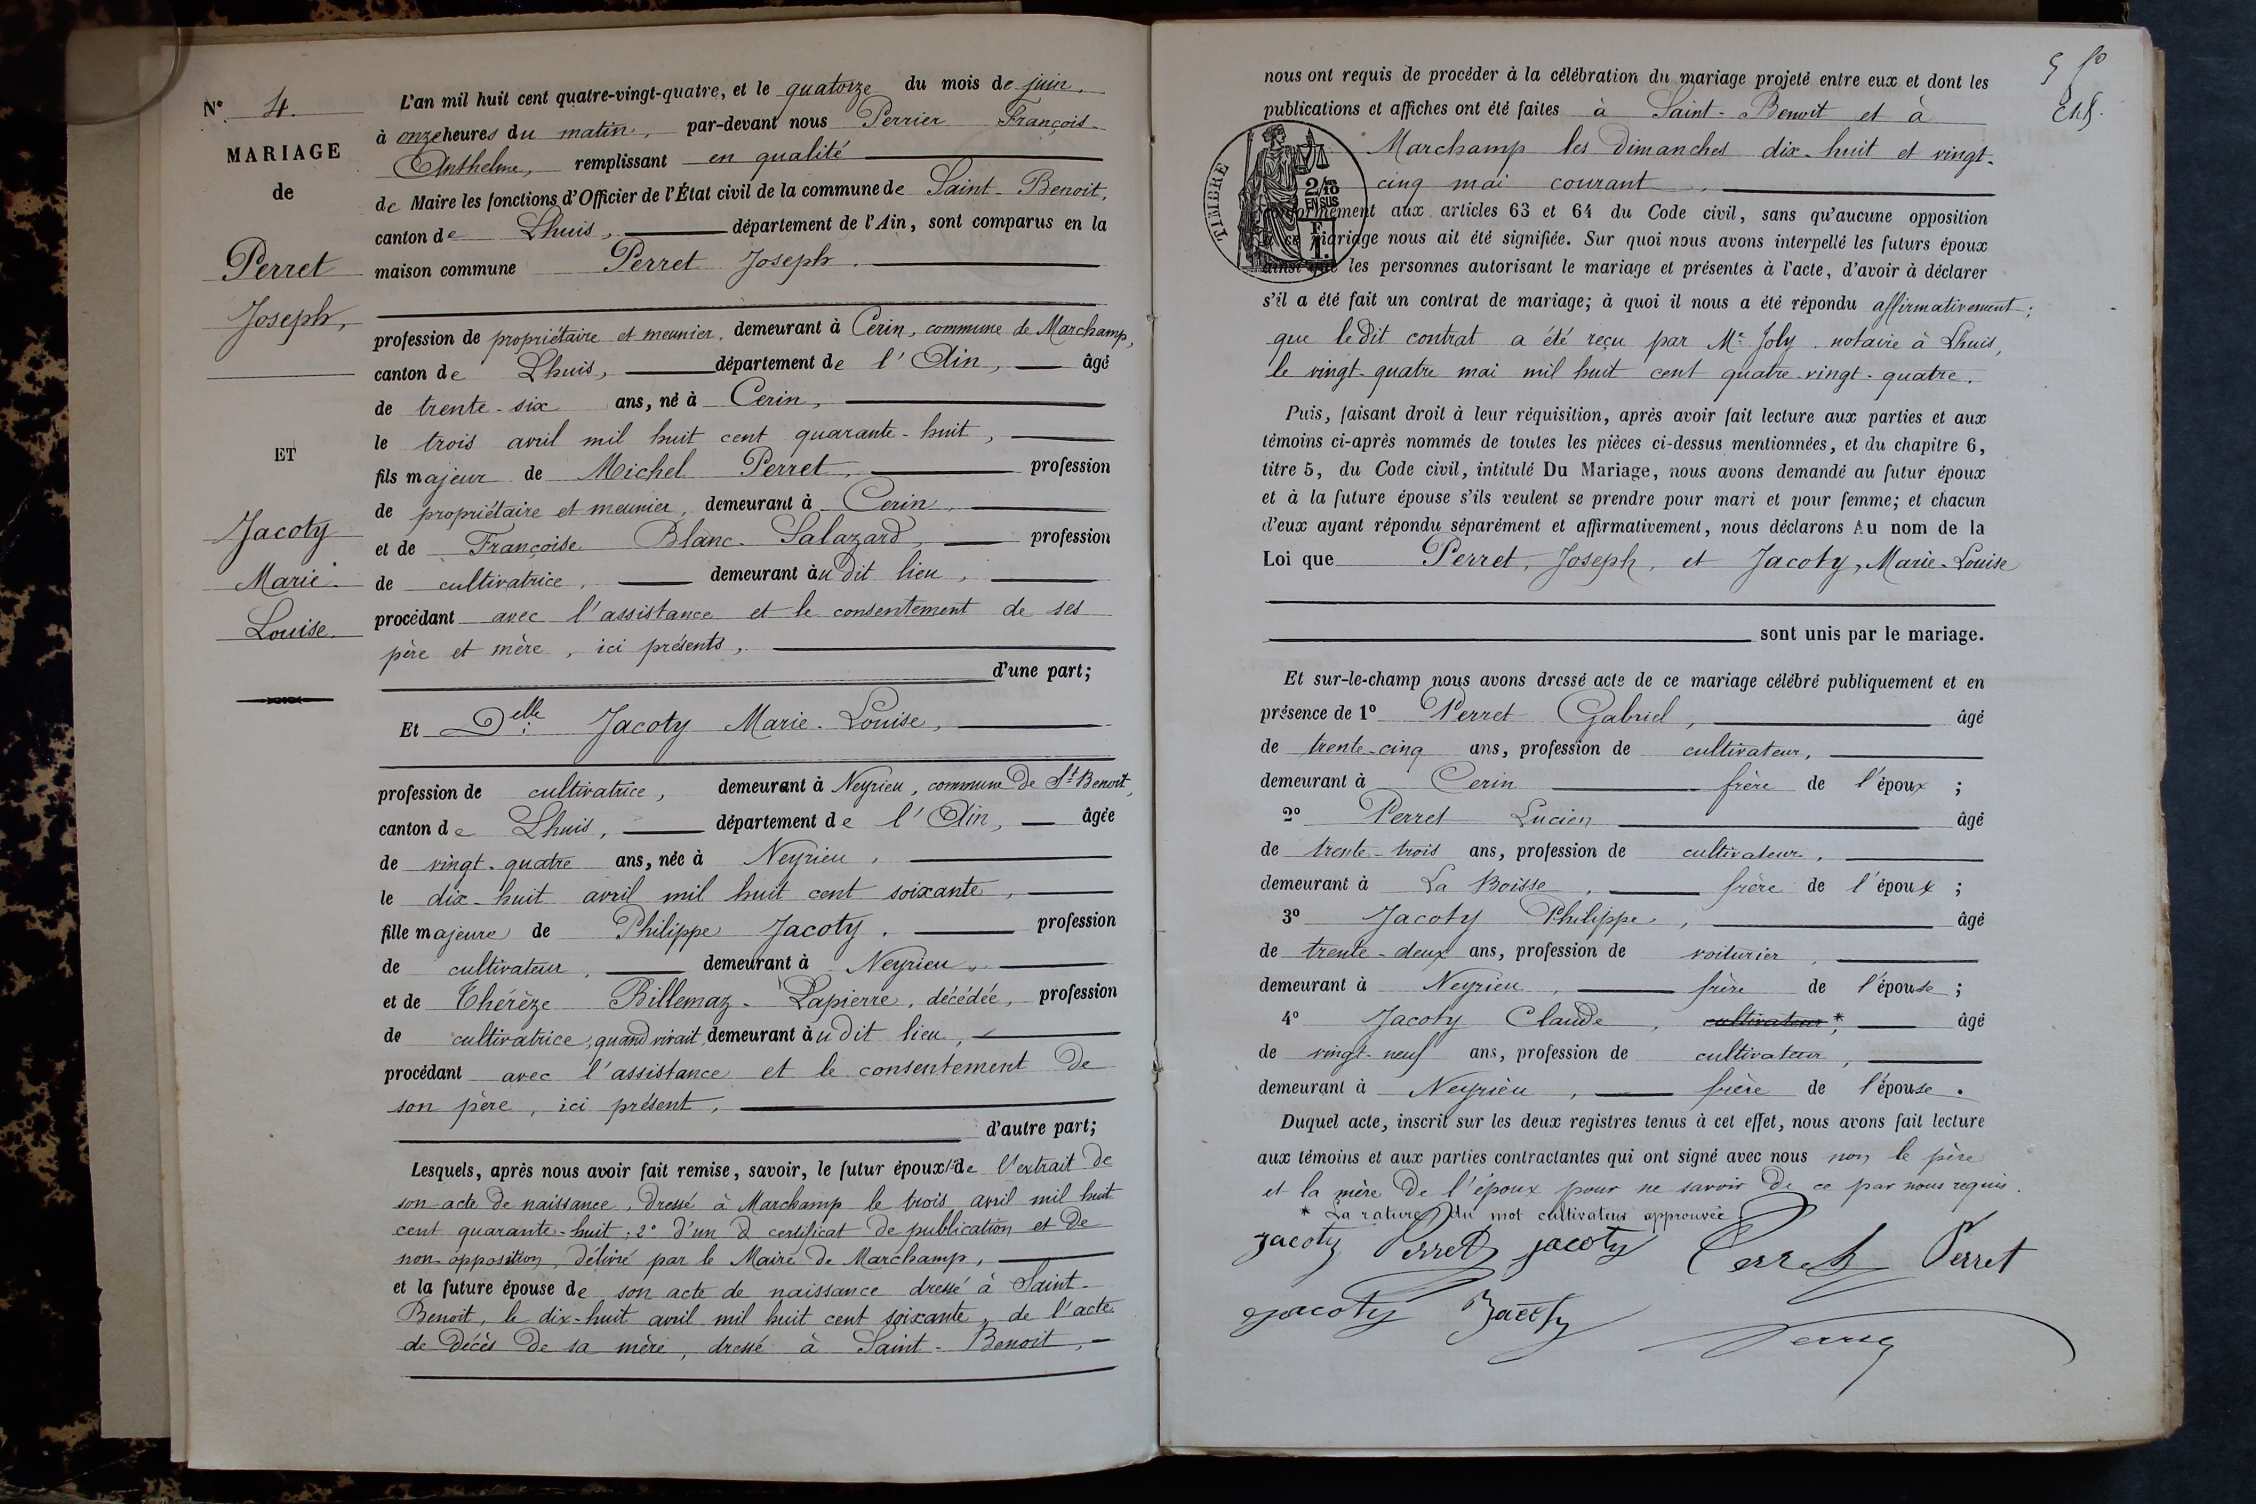 N° 4.
MARIAGE
de
Perret
Joseph,
ET
Jacoty
Marie
Louise.
L'an mil huit cent quatre-vingt-quatre, et le quatorze du mois de juin,
à onze heures du matin, par-devant nous Perrier François
Anthelme, remplissant en qualité
de Maire les fonctions d'Officier de l'État civil de la commune de Saint-Benoit,
canton de Lhuis, département de l'Ain, sont comparus en la
maison commune Perret Joseph.
profession de propriétaire et meunier, demeurant à Cerin, commune de Marchamp,
canton de Lhuis, département de l'Ain, âgé
de trente-six ans, né à Cerin,
le trois avril mil huit cent quarante-huit,
fils majeur de Michel Perret, profession
de propriétaire et meunier, demeurant à Cerin,
et de Françoise Blanc-Salazard, profession
de cultivatrice, demeurant àu dit lieu,
procédant avec l'assistance et le consentement de ses
père et mère, ici présents,
d'une part;
Et Delle Jacoty Marie-Louise,
profession de cultivatrice, demeurant à Neyrieu, commune de St Benoit,
canton de Lhuis, département de l'Ain, âgée
de vingt-quatre ans, née à Neyrieu,
le dix-huit avril mil huit cent soixante,
fille majeure de Philippe Jacoty, profession
de cultivateur, demeurant à Neyrieu,
et de Thérèze Billemaz-Lapierre, décédée, profession
de cultivatrice, quand vivait, demeurant àu dit lieu,
procédant avec l'assistance et le consentement de
son père, ici présent,
d'autre part;
Lesquels, après nous avoir fait remise, savoir, le futur époux 1° de l'extrait de
son acte de naissance, dressé à Marchamp le trois avril mil huit
cent quarante-huit; 2° d'un certificat de publication et de
non opposition, délivré par le Maire de Marchamp,
et la future épouse de son acte de naissance dressé à Saint-
Benoit, le dix-huit avril mil huit cent soixante, de l'acte
de décès de sa mère, dressé à Saint-Benoit,
5 fo
nous ont requis de procéder à la célébration du mariage projeté entre eux et dont les
publications et affiches ont été faites à Saint-Benoit et à
Marchamp les dimanches dix-huit et vingt-
cinq mai courant
TIMBRE
2/10 EN SUS
F. 1.
conformément aux articles 63 et 64 du Code civil, sans qu'aucune opposition
à ce mariage nous ait été signifiée. Sur quoi nous avons interpellé les futurs époux
ainsi que les personnes autorisant le mariage et présentes à l'acte, d'avoir à déclarer
s'il a été fait un contrat de mariage; à quoi il nous a été répondu affirmativement;
que le dit contrat a été reçu par Me Joly notaire à Lhuis,
le vingt-quatre mai mil huit cent quatre-vingt-quatre.
Puis, faisant droit à leur réquisition, après avoir fait lecture aux parties et aux
témoins ci-après nommés de toutes les pièces ci-dessus mentionnées, et du chapitre 6,
titre 5, du Code civil, intitulé Du Mariage, nous avons demandé au futur époux
et à la future épouse s'ils veulent se prendre pour mari et pour femme; et chacun
d'eux ayant répondu séparément et affirmativement, nous déclarons Au nom de la
Loi que Perret, Joseph, et Jacoty, Marie-Louise
sont unis par le mariage.
Et sur-le-champ nous avons dressé acte de ce mariage célébré publiquement et en
présence de 1° Perret Gabriel, âgé
de trente-cinq ans, profession de cultivateur,
demeurant à Cerin frère de l'époux;
2° Perret Lucien âgé
de trente-trois ans, profession de cultivateur,
demeurant à La Boisse, frère de l'époux;
3° Jacoty Philippe, âgé
de trente-deux ans, profession de voiturier,
demeurant à Neyrieu, frère de l'épouse;
4° Jacoty Claude, cultivateur*, âgé
de vingt-neuf ans, profession de cultivateur,
demeurant à Neyrieu, frère de l'épouse.
Duquel acte, inscrit sur les deux registres tenus à cet effet, nous avons fait lecture
aux témoins et aux parties contractantes qui ont signé avec nous non le père
et la mère de l'époux pour ne savoir de ce par nous requis.
* La rature du mot cultivateur approuvée
Jacoty Perret Jacoty Perret Perret
Jacoty Jacoty Perrier